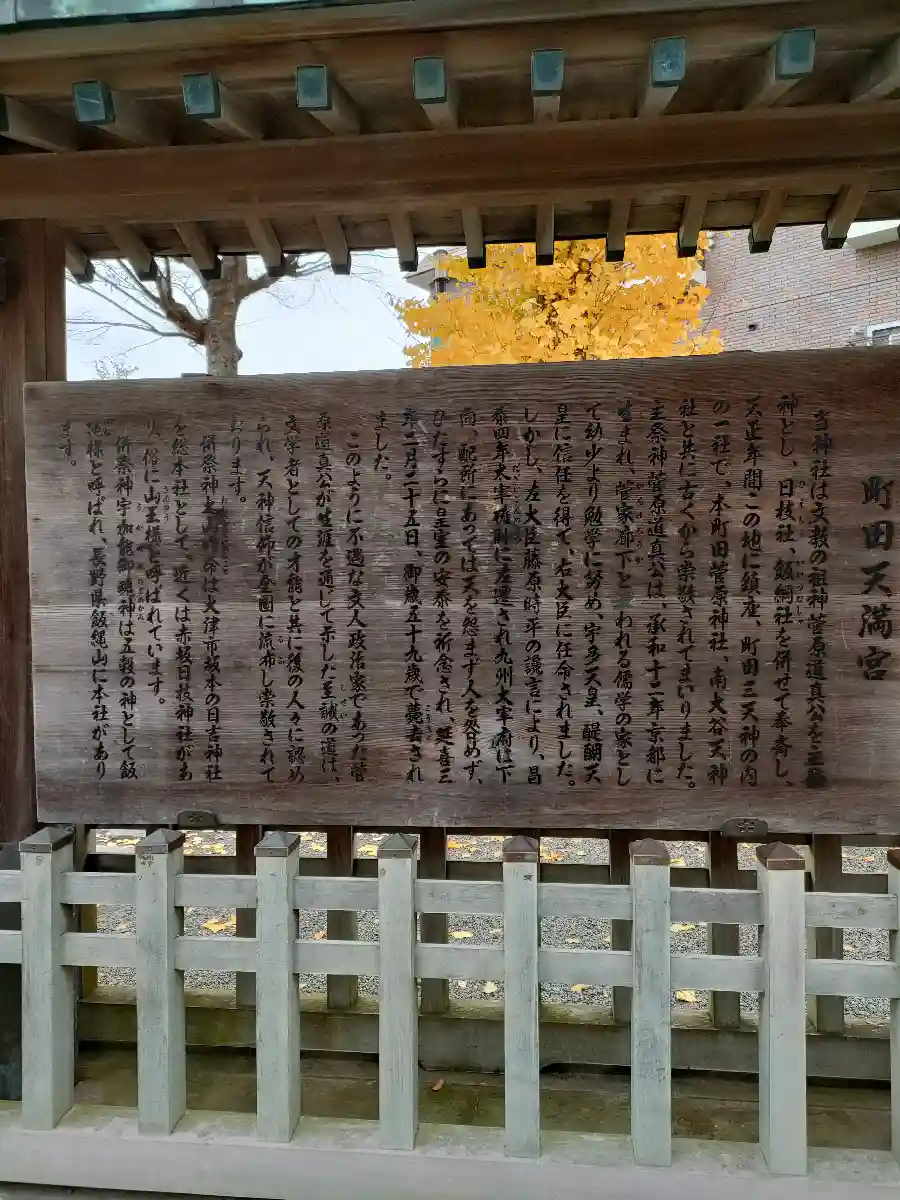 町田天満宮
当神社は文教の祖神菅原道真公を主祭
神とし、日枝社、飯綱社を併せて奉斎し、
天正年間この地に鎮座、町田三天神の内
の一社で、本町田菅原神社、南大谷天神
社と共に古くから崇敬されてまいりました。
主祭神菅原道真公は、承和十二年京都に
生まれ、菅家廊下と云われる儒学の家とし
て幼少より勉学に努め、宇多天皇、醍醐天
皇に信任を得て、右大臣に任命されました。
しかし、左大臣藤原時平の讒言により、昌
泰四年太宰権則に左遷され九州大宰府に下
向、配所にあっては天を怨まず人を咎めず、
ひたすらに皇室の安泰を祈念され、延喜三
年二月二十五日、御歳五十九歳で薨去され
ました。
このように不遇な文人政治家であった菅
原道真公が生涯を通して示した至誠の道は、
文学者としての才能と共に後の人々に認め
られ、天神信仰が全國に流布し崇敬されて
おります。
併祭神大山咋命は大津市坂本の日吉神社
を総本社として、近くは赤坂日枝神社があ
り、俗に山王様と呼ばれています。
併祭神宇加能御魂神は五穀の神として飯
縄様と呼ばれ、長野県飯縄山に本社があり
ます。